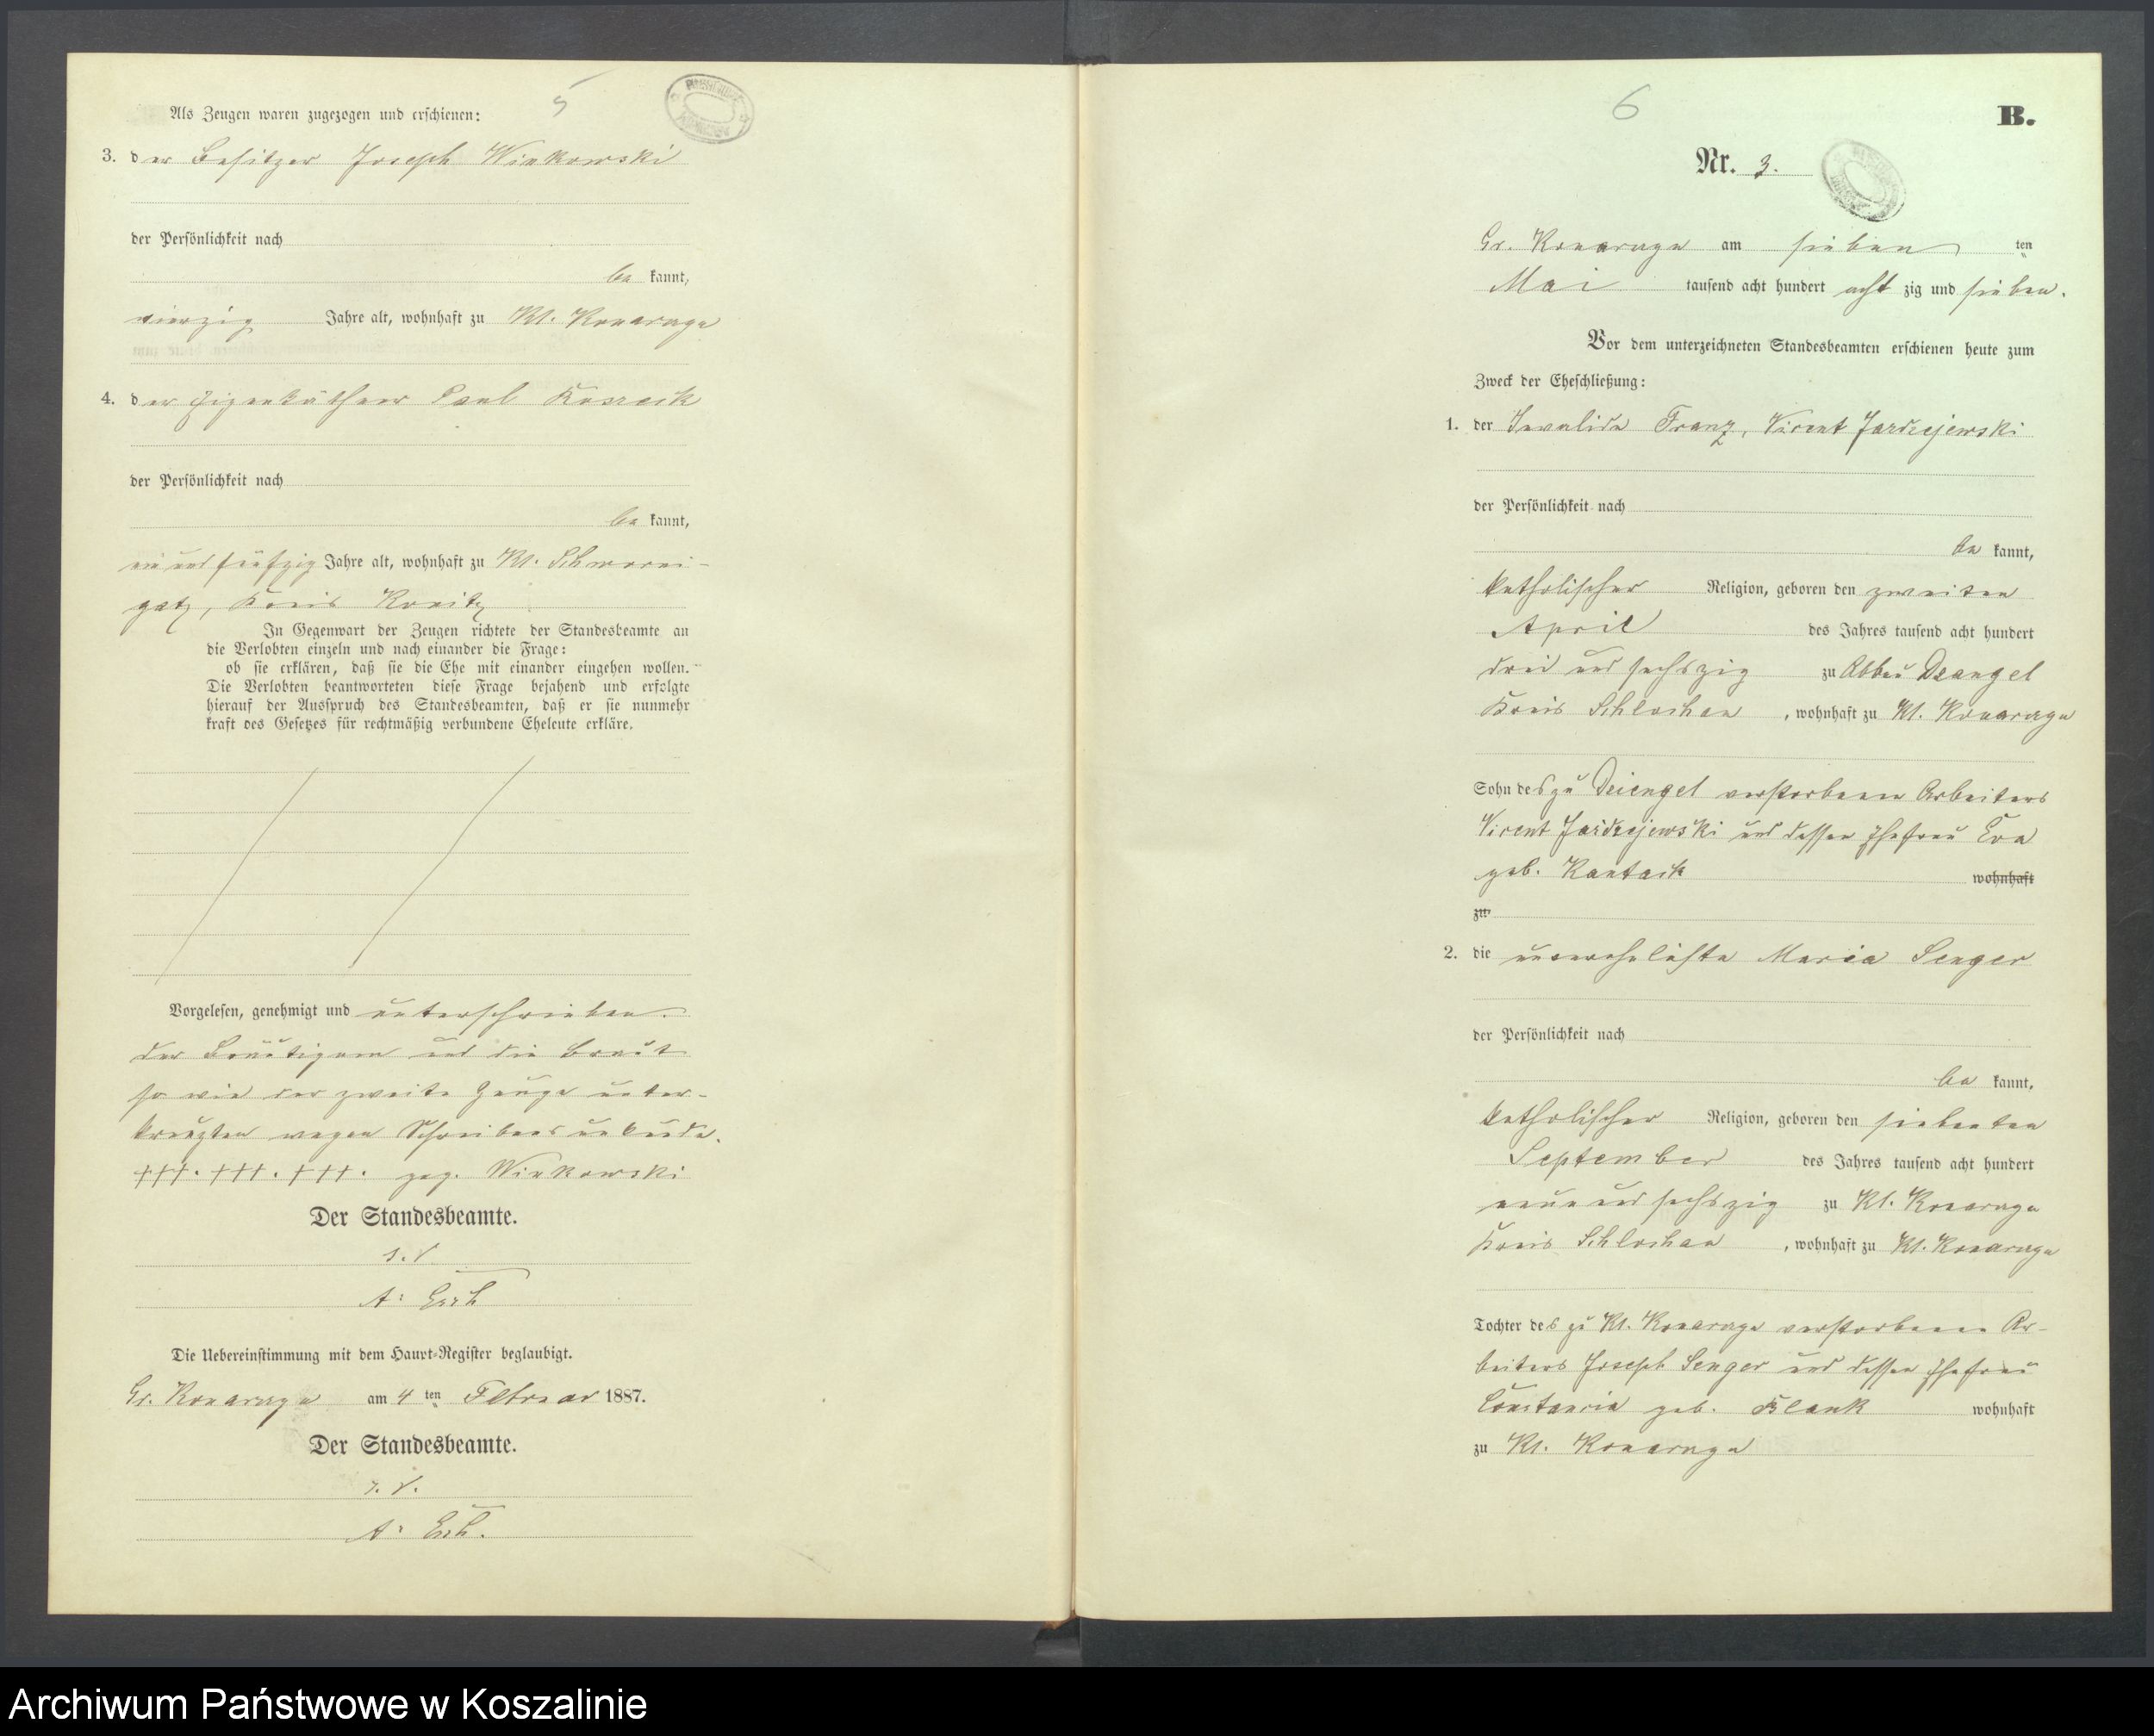 5
Als Zeugen waren zugezogen und erschienen:
3. der Besitzer Joseph Winkowski
der Persönlichkeit nach
be kannt,
vierzig Jahre alt, wohnhaft zu Kl. Konarzyn
4. der Eigenkäthner Paul
der Persönlichkeit nach
be kannt,
ein und fünfzig Jahre alt, wohnhaft zu Kl. Schworni-
gatz, Kreis Konitz
In Gegenwart der Zeugen richtete der Standesbeamte an
die Verlobten einzeln und nach einander die Frage:
ob sie erklären, daß sie die Ehe mit einander eingehen wollen.
Die Verlobten beantworteten diese Frage bejahend und erfolgte
hierauf der Ausspruch des Standesbeamten, daß er sie nunmehr
kraft des Gesetzes für rechtmäßig verbundene Eheleute erkläre.
Vorgelesen, genehmigt und unterschrieben.
Der Bräutigam und die Braut
so wie der zweite Zeuge unter-
kreuzten wegen Schreibensunkunde.
+++. +++. +++. gez. Winkowski
Der Standesbeamte.
A.
Die Uebereinstimmung mit dem Haupt-Register beglaubigt.
Gr. Konarzyn am 4 ten Februar 1887.
Der Standesbeamte.
A.
6
B.
Nr. 3.
Gr. Konarzyn am sieben ten
Mai tausend acht hundert acht zig und sieben.
Vor dem unterzeichneten Standesbeamten erschienen heute zum
Zweck der Eheschließung:
1. der Invalide Franz, Vincent Jazdzejewski
der Persönlichkeit nach
be kannt,
katholischer Religion, geboren den zweiten
April des Jahres tausend acht hundert
drei und sechszig zu Abbau Dzengel
Kreis Schlochau, wohnhaft zu Kl. Konarzyn
Sohn des zu Dziengel verstorbenen Arbeiters
Vincent Jazdzejewski und dessen Ehefrau Eva
geb. Kantack wohnhaft
zu
2. die unverehelichte Maria Senger
der Persönlichkeit nach
be kannt,
katholischer Religion, geboren den siebenten
September des Jahres tausend acht hundert
neun und sechszig zu Kl. Konarzyn
Kreis Schlochau, wohnhaft zu Kl. Konarzyn
Tochter des zu Kl. Konarzyn verstorbenen Ar-
beiters Joseph Senger und dessen Ehefrau
Constancia geb. Blank wohnhaft
zu Kl. Konarzyn
Archiwum Państwowe w Koszalinie